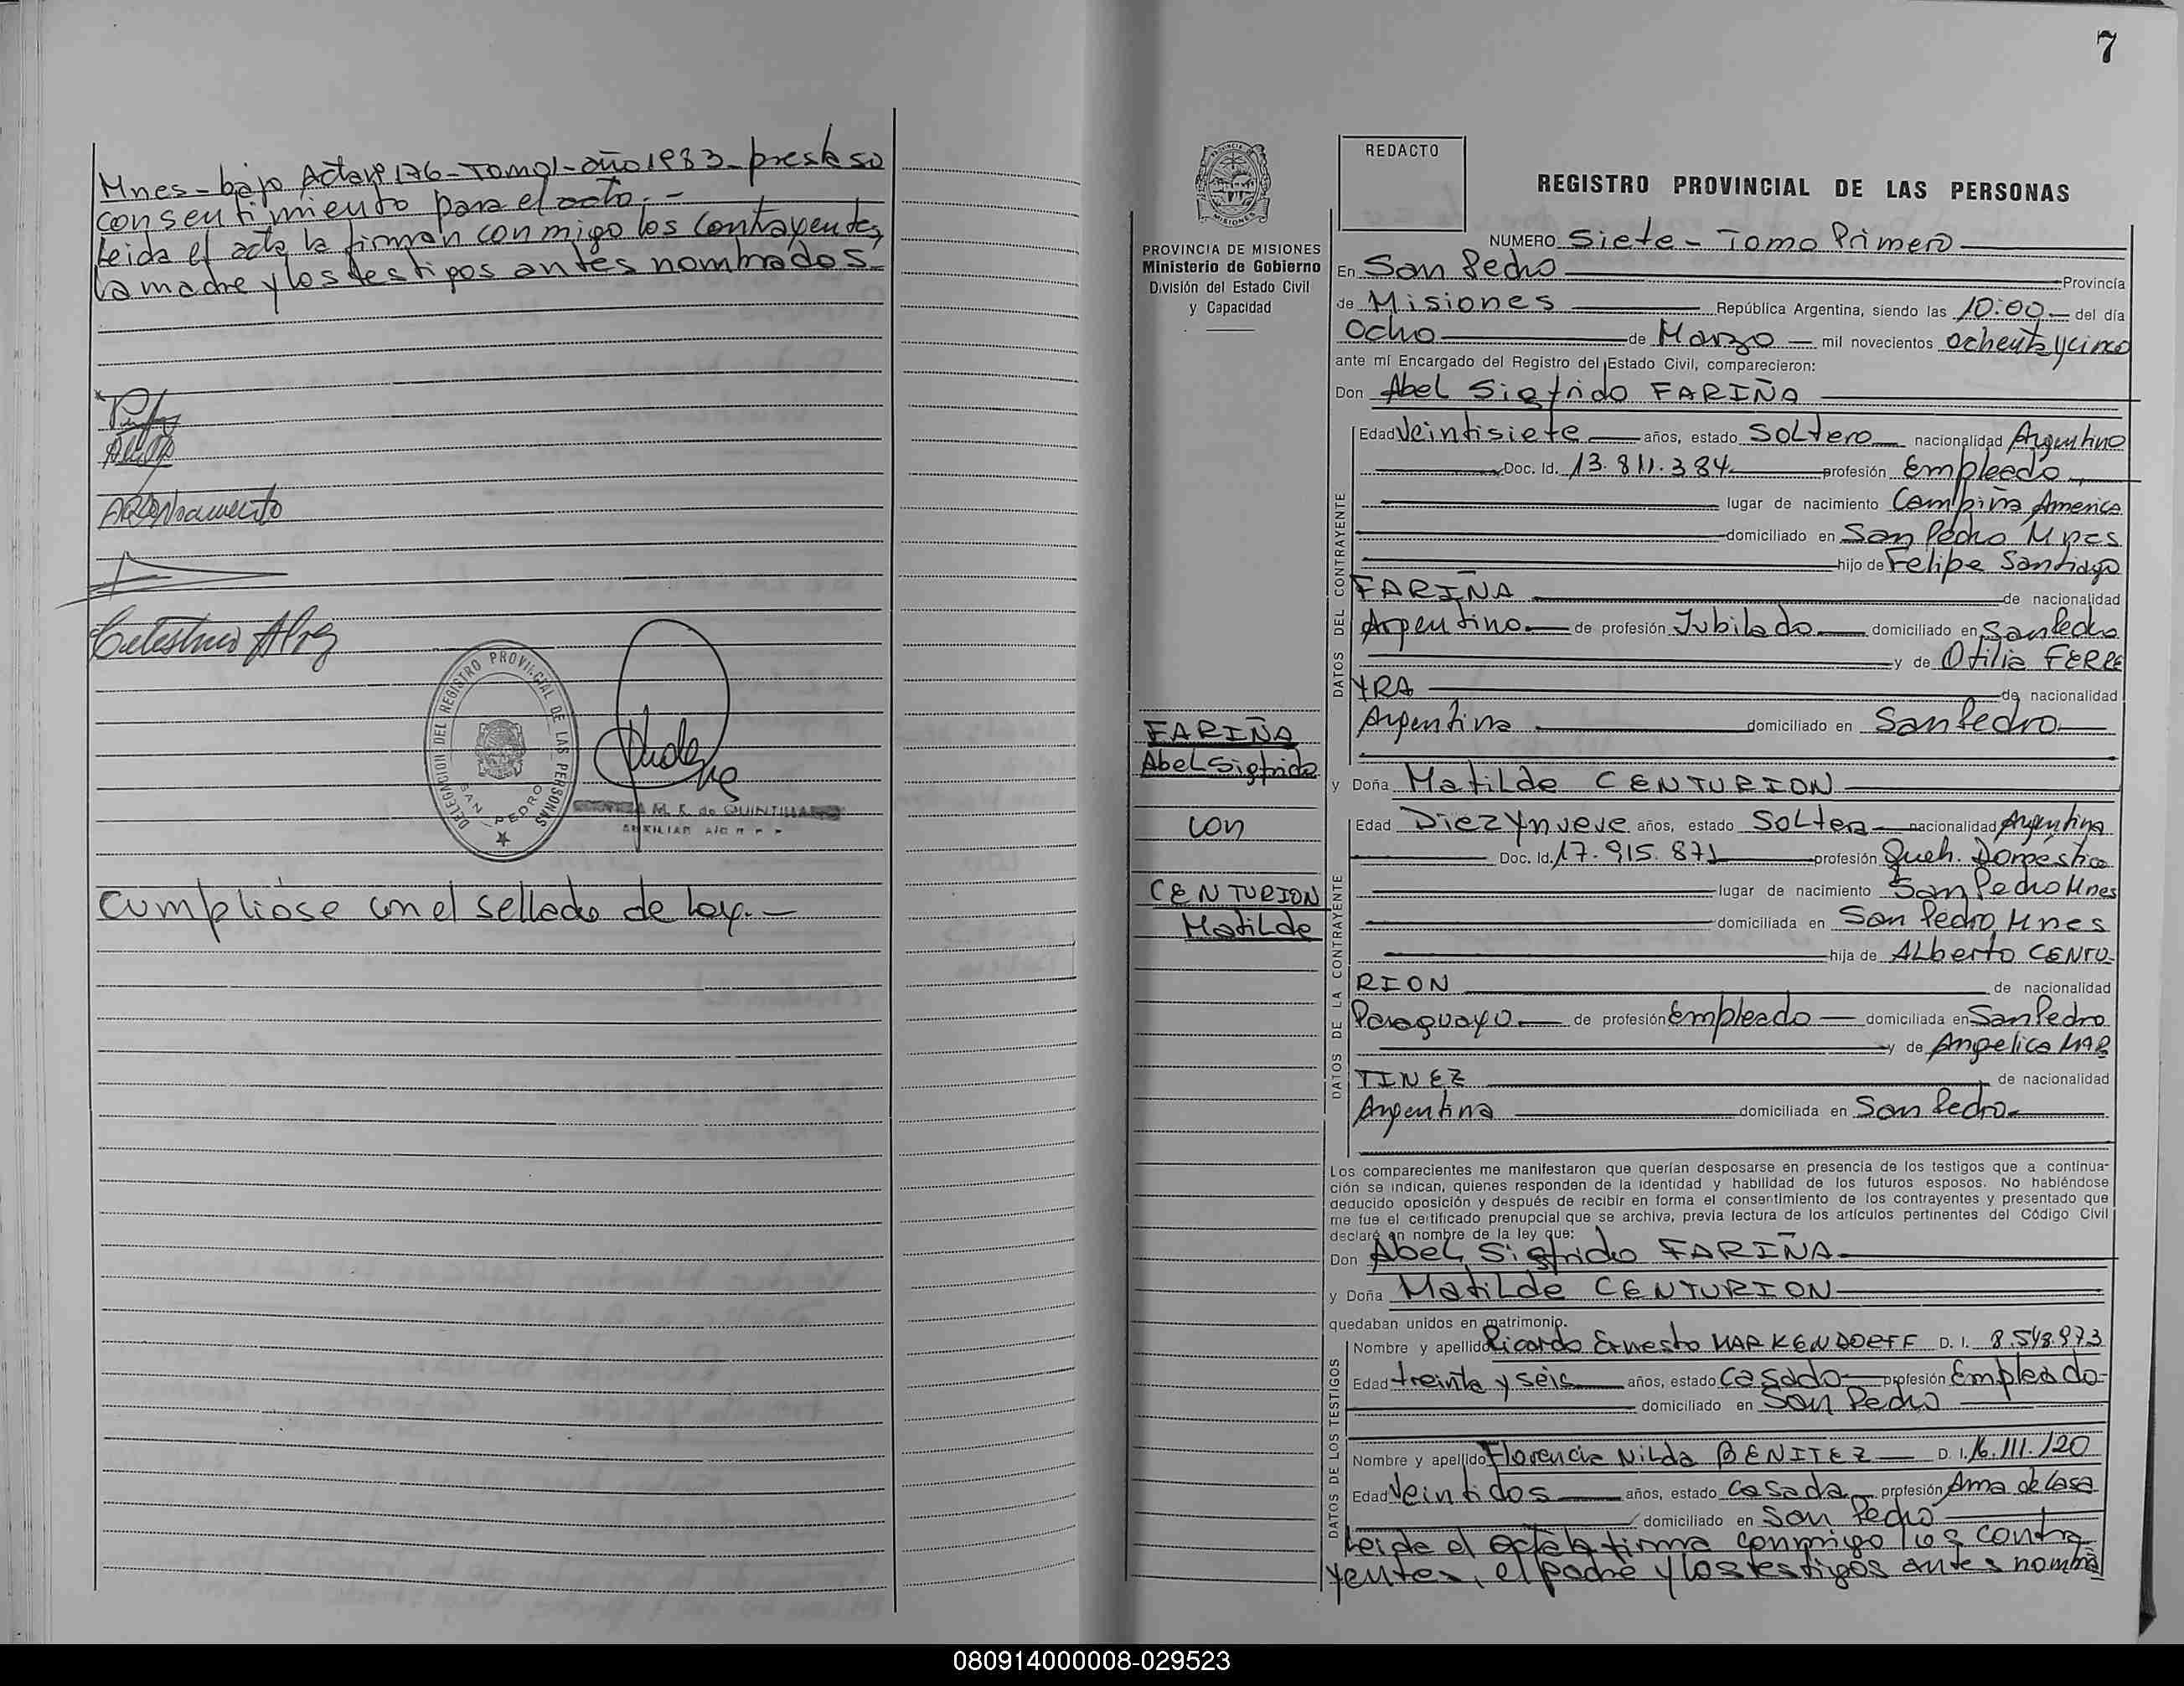 Mnes - bajo Acta Nº 176 - Tomo 1 - año 1983 - presta su
consentimiento para el acto. -
Leida el acta la firman conmigo los contrayentes,
la madre y los testigos antes nombrados -
Celestino
DELEGACION DEL REGISTRO PROVINCIAL DE LAS PERSONAS
SAN PEDRO
M. K. de QUINTILLAN
AUXILIAR
Cumpliose con el sellado de Ley. -
7
PROVINCIA DE MISIONES
Ministerio de Gobierno
División del Estado Civil
y Capacidad
FARIÑA
Abel Sigfrido
con
CENTURION
Matilde
REDACTO
REGISTRO PROVINCIAL DE LAS PERSONAS
NUMERO Siete - Tomo Primero
En San Pedro Provincia
de Misiones República Argentina, siendo las 10:00 del día
Ocho de Marzo mil novecientos ochenta y cinco
ante mí Encargado del Registro del Estado Civil, comparecieron:
Don Abel Sigfrido FARIÑA
DATOS DEL CONTRAYENTE
Edad Veintisiete años, estado Soltero nacionalidad Argentino
Doc. Id. 13.811.384 profesión Empleado
lugar de nacimiento Campiña America
domiciliado en San Pedro Mnes
hijo de Felipe Santiago
FARIÑA de nacionalidad
Argentino de profesión Jubilado domiciliado en San Pedro
y de Otilia FERRE
YRA de nacionalidad
Argentina domiciliado en San Pedro
y Doña Matilde CENTURION
DATOS DE LA CONTRAYENTE
Edad Diez y nueve años, estado Soltera nacionalidad Argentina
Doc. Id. 17.915.871 profesión Queh. Domestica
lugar de nacimiento San Pedro Mnes
domiciliada en San Pedro Mnes
hija de Alberto CENTU
RION de nacionalidad
Paraguayo de profesión Empleado domiciliada en San Pedro
y de Angelica MAR
TINEZ de nacionalidad
Argentina domiciliada en San Pedro
Los comparecientes me manifestaron que querían desposarse en presencia de los testigos que a continua-
ción se indican, quienes responden de la identidad y habilidad de los futuros esposos. No habiéndose
deducido oposición y después de recibir en forma el consentimiento de los contrayentes y presentado que
me fue el certificado prenupcial que se archiva, previa lectura de los artículos pertinentes del Código Civil
declaré en nombre de la ley que:
Don Abel Sigfrido FARIÑA
y Doña Matilde CENTURION
quedaban unidos en matrimonio.
DATOS DE LOS TESTIGOS
Nombre y apellido Ricardo Ernesto MARKENDORFF D. I. 8.548.973
Edad treinta y seis años, estado Casado profesión Empleado
domiciliado en San Pedro
Nombre y apellido Florencia Nilda BENITEZ D. I. 16.111.120
Edad Veintidos años, estado Casada profesión Ama de Casa
domiciliado en San Pedro
Leida el acta la firma conmigo los contra
yentes, el padre y los testigos antes nombra
080914000008-029523